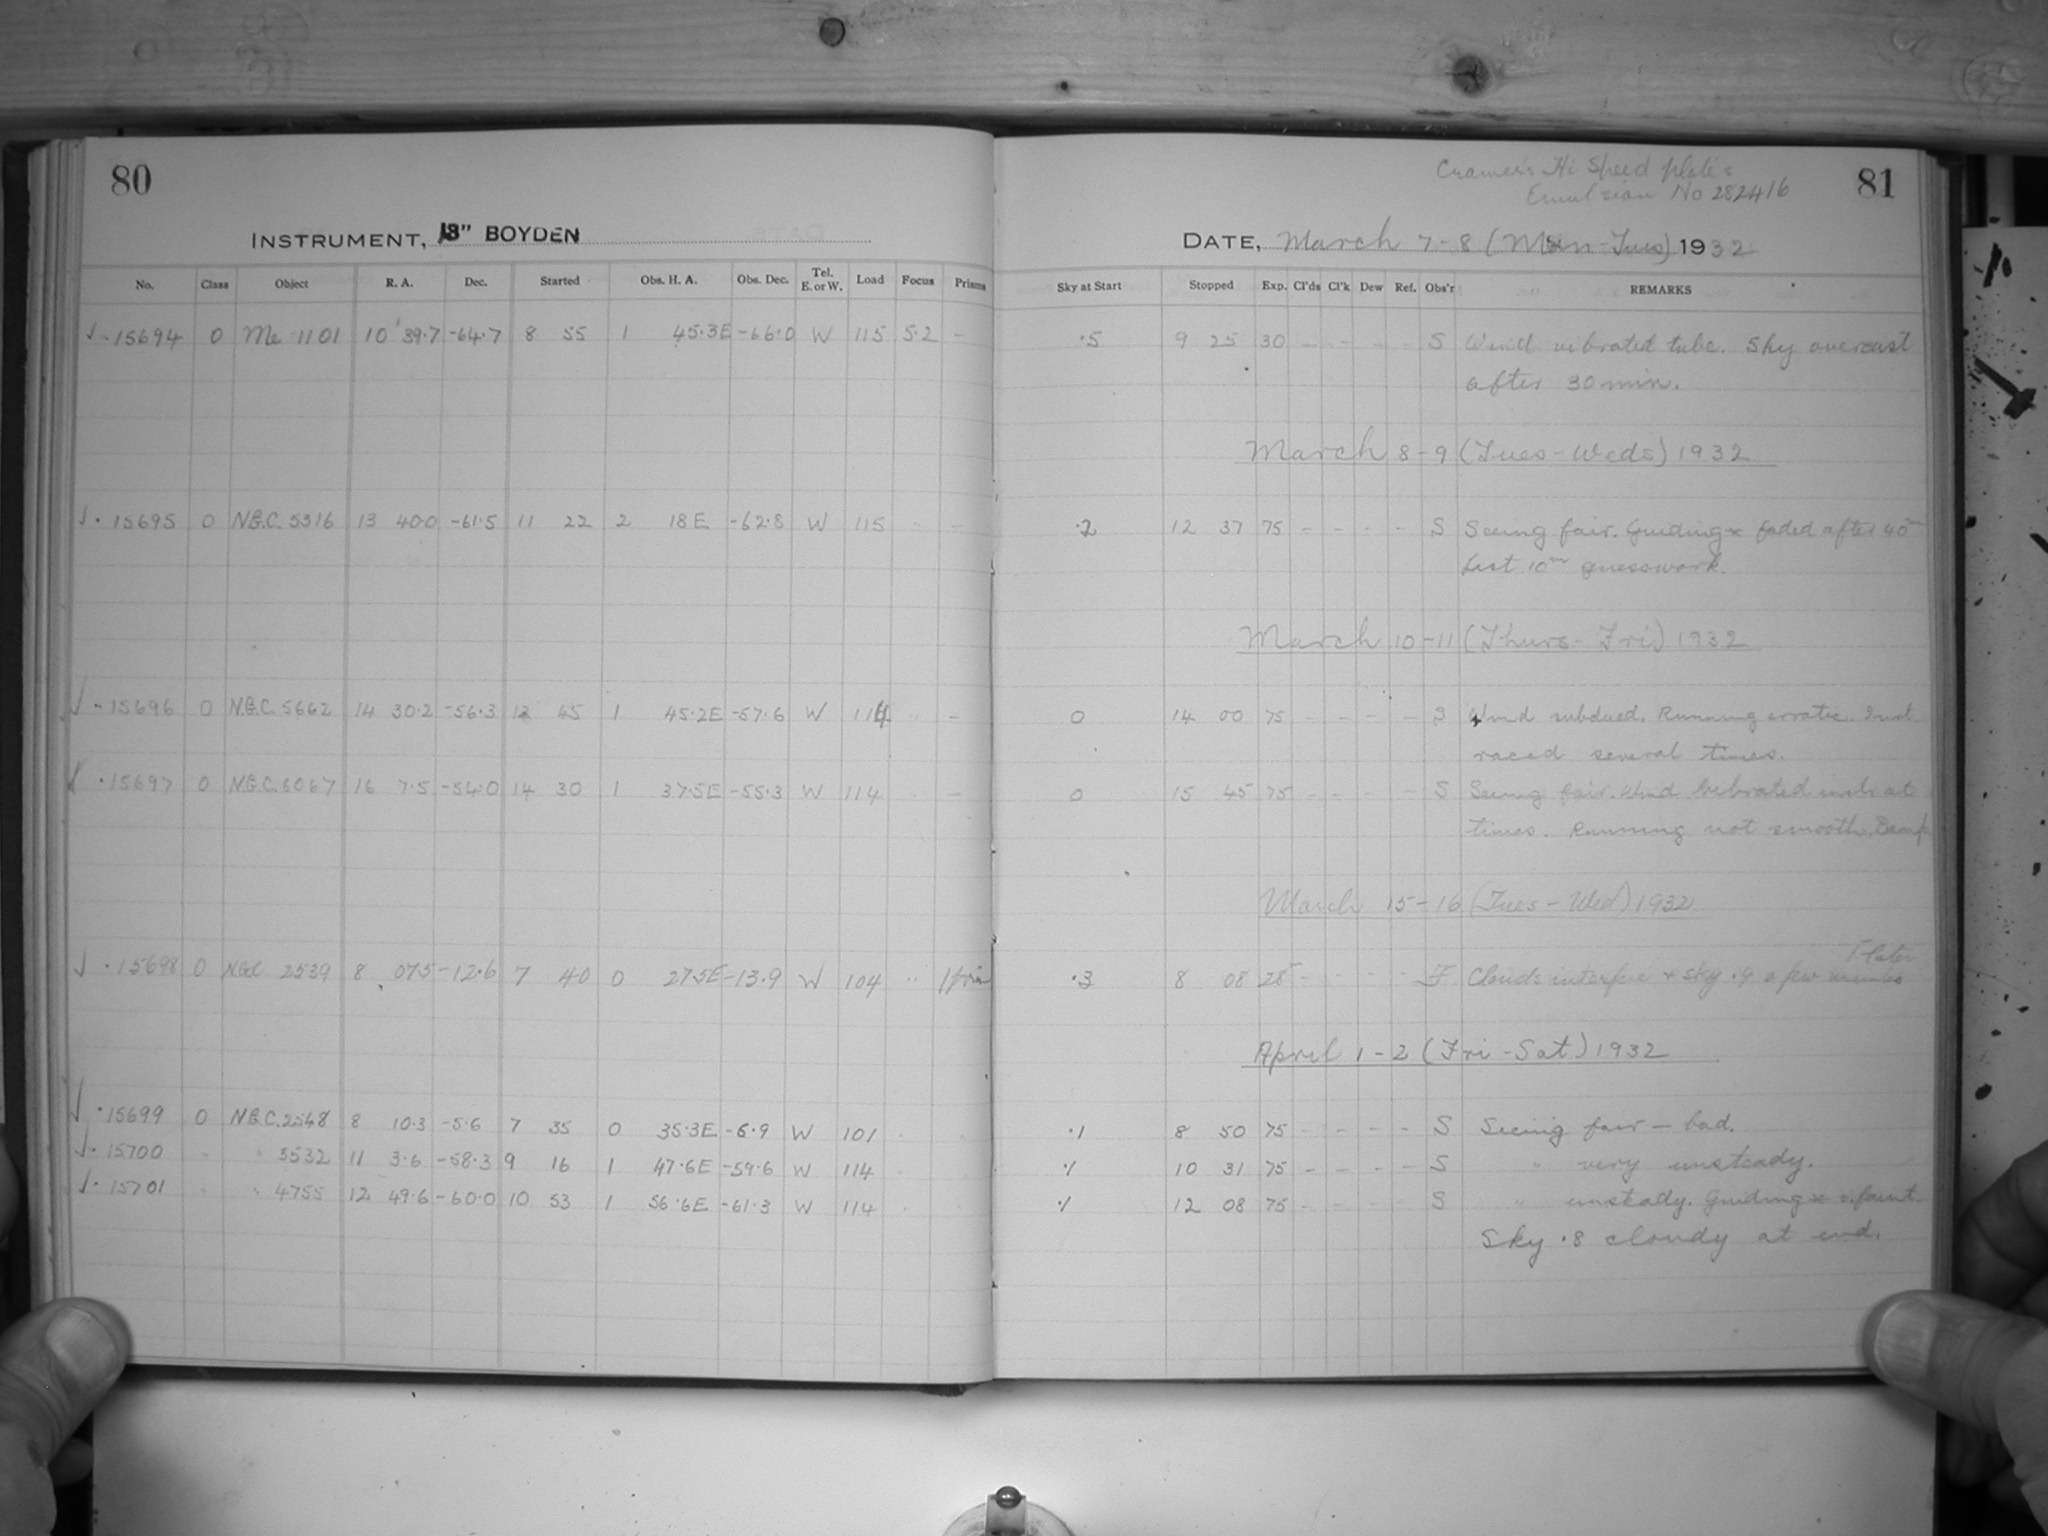 80
INSTRUMENT, 13" BOYDEN
No. Class Object R. A. Dec. Started Obs. H. A. Obs. Dec. Tel. E. or W. Load Focus Prisms
√ - 15694 0 Me 1101 10 39.7 -64.7 8 55 1 45.3E -66.0 W 115 5.2 -
√ · 15695 0 N.G.C. 5316 13 40.0 -61.5 11 22 2 18 E -62.8 W 115 " -
√ - 15696 0 N.G.C. 5662 14 30.2 -56.3 12 45 1 45.2E -57.6 W 114 " -
√ · 15697 0 N.G.C. 6067 16 7.5 -54.0 14 30 1 37.5E -55.3 W 114 " -
√ · 15698 0 NGC 2539 8 07.5 -12.6 7 40 0 27.5E -13.9 W 104 "
√ · 15699 0 N.G.C. 2548 8 10.3 -5.6 7 35 0 35.3E -6.9 W 101
√ · 15700 " " 5532 11 3.6 -58.3 9 16 1 47.6E -59.6 W 114
√ · 15701 " " 4755 12 49.6 -60.0 10 53 1 56.6E -61.3 W 114
Cramer's Hi Speed plates
Emulsion No 282416
81
DATE, March 7-8 (Mon-Tues) 1932
Sky at Start Stopped Exp. Cl'ds Cl'k Dew Ref. Obs'r REMARKS
.5 9 25 30 - - - - S Wind vibrated tube. Sky overcast
after 30 min.
March 8-9 (Tues-Weds) 1932
.2 12 37 75 - - - - S Seeing fair. Guiding x faded after 40m
Last 10m guesswork.
March 10-11 (Thurs-Fri) 1932
0 14 00 75 - - - - S Wind subdued. Running erratic. Inst
raced several times.
0 15 45 75 - - - - S Seeing fair. Wind vibrated inst. at
times. Running not smooth.
March 15-16 (Tues-Wed) 1932
.3 8 08 28 - - - - F Clouds interfere + sky .9 a few minutes
later
April 1-2 (Fri-Sat) 1932
.1 8 50 75 - - - - S Seeing fair - bad.
.1 10 31 75 - - - - S " very unsteady.
.1 12 08 75 - - - - S " unsteady. Guiding x v. faint.
Sky .8 cloudy at end.